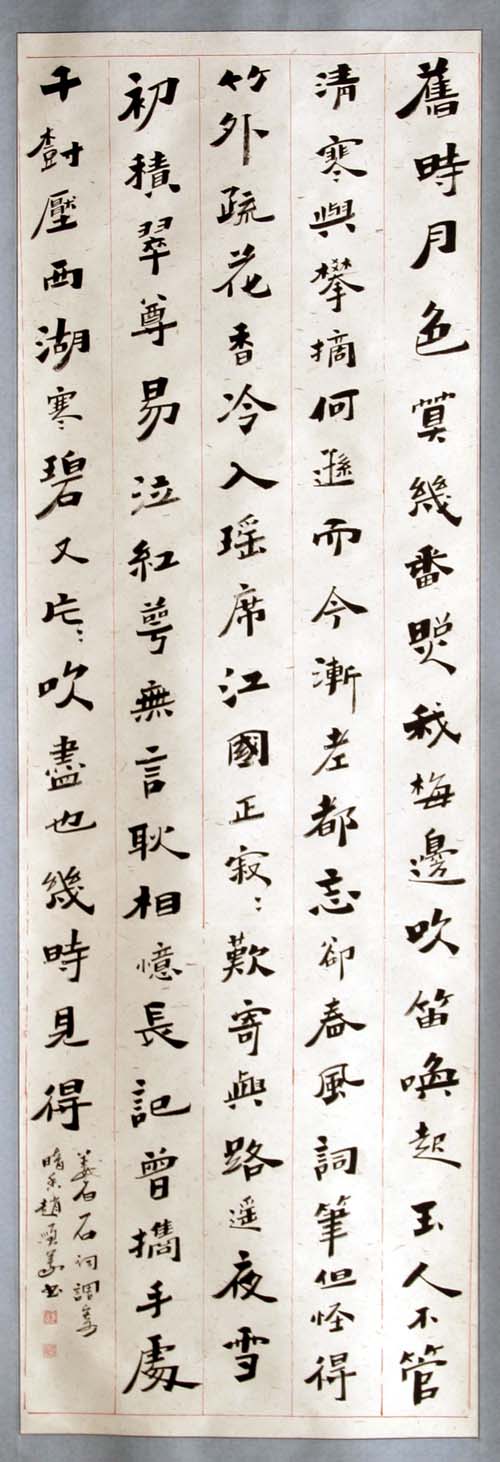 舊時月色算幾番照我梅邊吹笛喚起玉人不管
清寒與攀摘何遜而今漸老都忘卻春風詞筆但怪得
竹外疏花香冷入瑤席江國正寂〻歎寄與路遙夜雪
初積翠尊易泣紅萼無言耿相憶長記曾攜手處
千樹壓西湖寒碧又片〻吹盡也幾時見得
姜白石词調寄
暗香趙順书